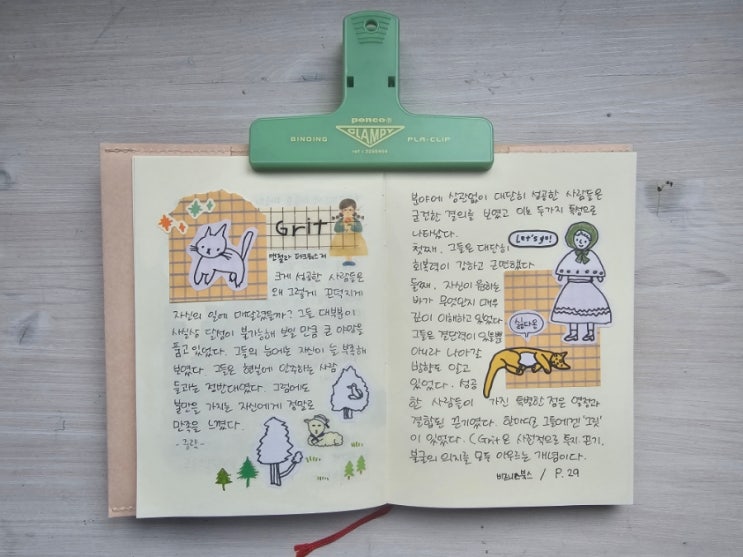 penco®
BINDING CLAMPY PLA-CLIP
Grit
앤절라 더크워스 저
크게 성공한 사람들은
왜 그렇게 끈덕지게
자신의 일에 매달렸을까? 그들 대부분이
사실상 달성이 불가능해 보일 만큼 큰 야망을
품고 있었다. 그들의 눈에는 자신이 늘 부족해
보였다. 그들은 현실에 안주하는 사람
들과는 정반대였다. 그럼에도
불만을 가지는 자신에게 정말로
만족을 느꼈다.
-중략-
분야에 상관없이 대단히 성공한 사람들은
굳건한 결의를 보였고 이는 두가지 특성으로
나타났다.
첫째. 그들은 대단히
회복력이 강하고 근면했다.
둘째. 자신이 원하는
바가 무엇인지 매우
깊이 이해하고 있었다
그들은 결단력이 있을뿐
아니라 나아갈
방향도 알고
있었다. 성공
한 사람들이 가진 특별한 점은 열정과
결합된 끈기였다. 한마디로 그들에겐 '그릿'
이 있었다. (Grit은 사전적으로 투지, 끈기,
불굴의 의지를 모두 아우르는 개념이다.
비즈니스북스 / P. 29
Let's go!
싫다옹